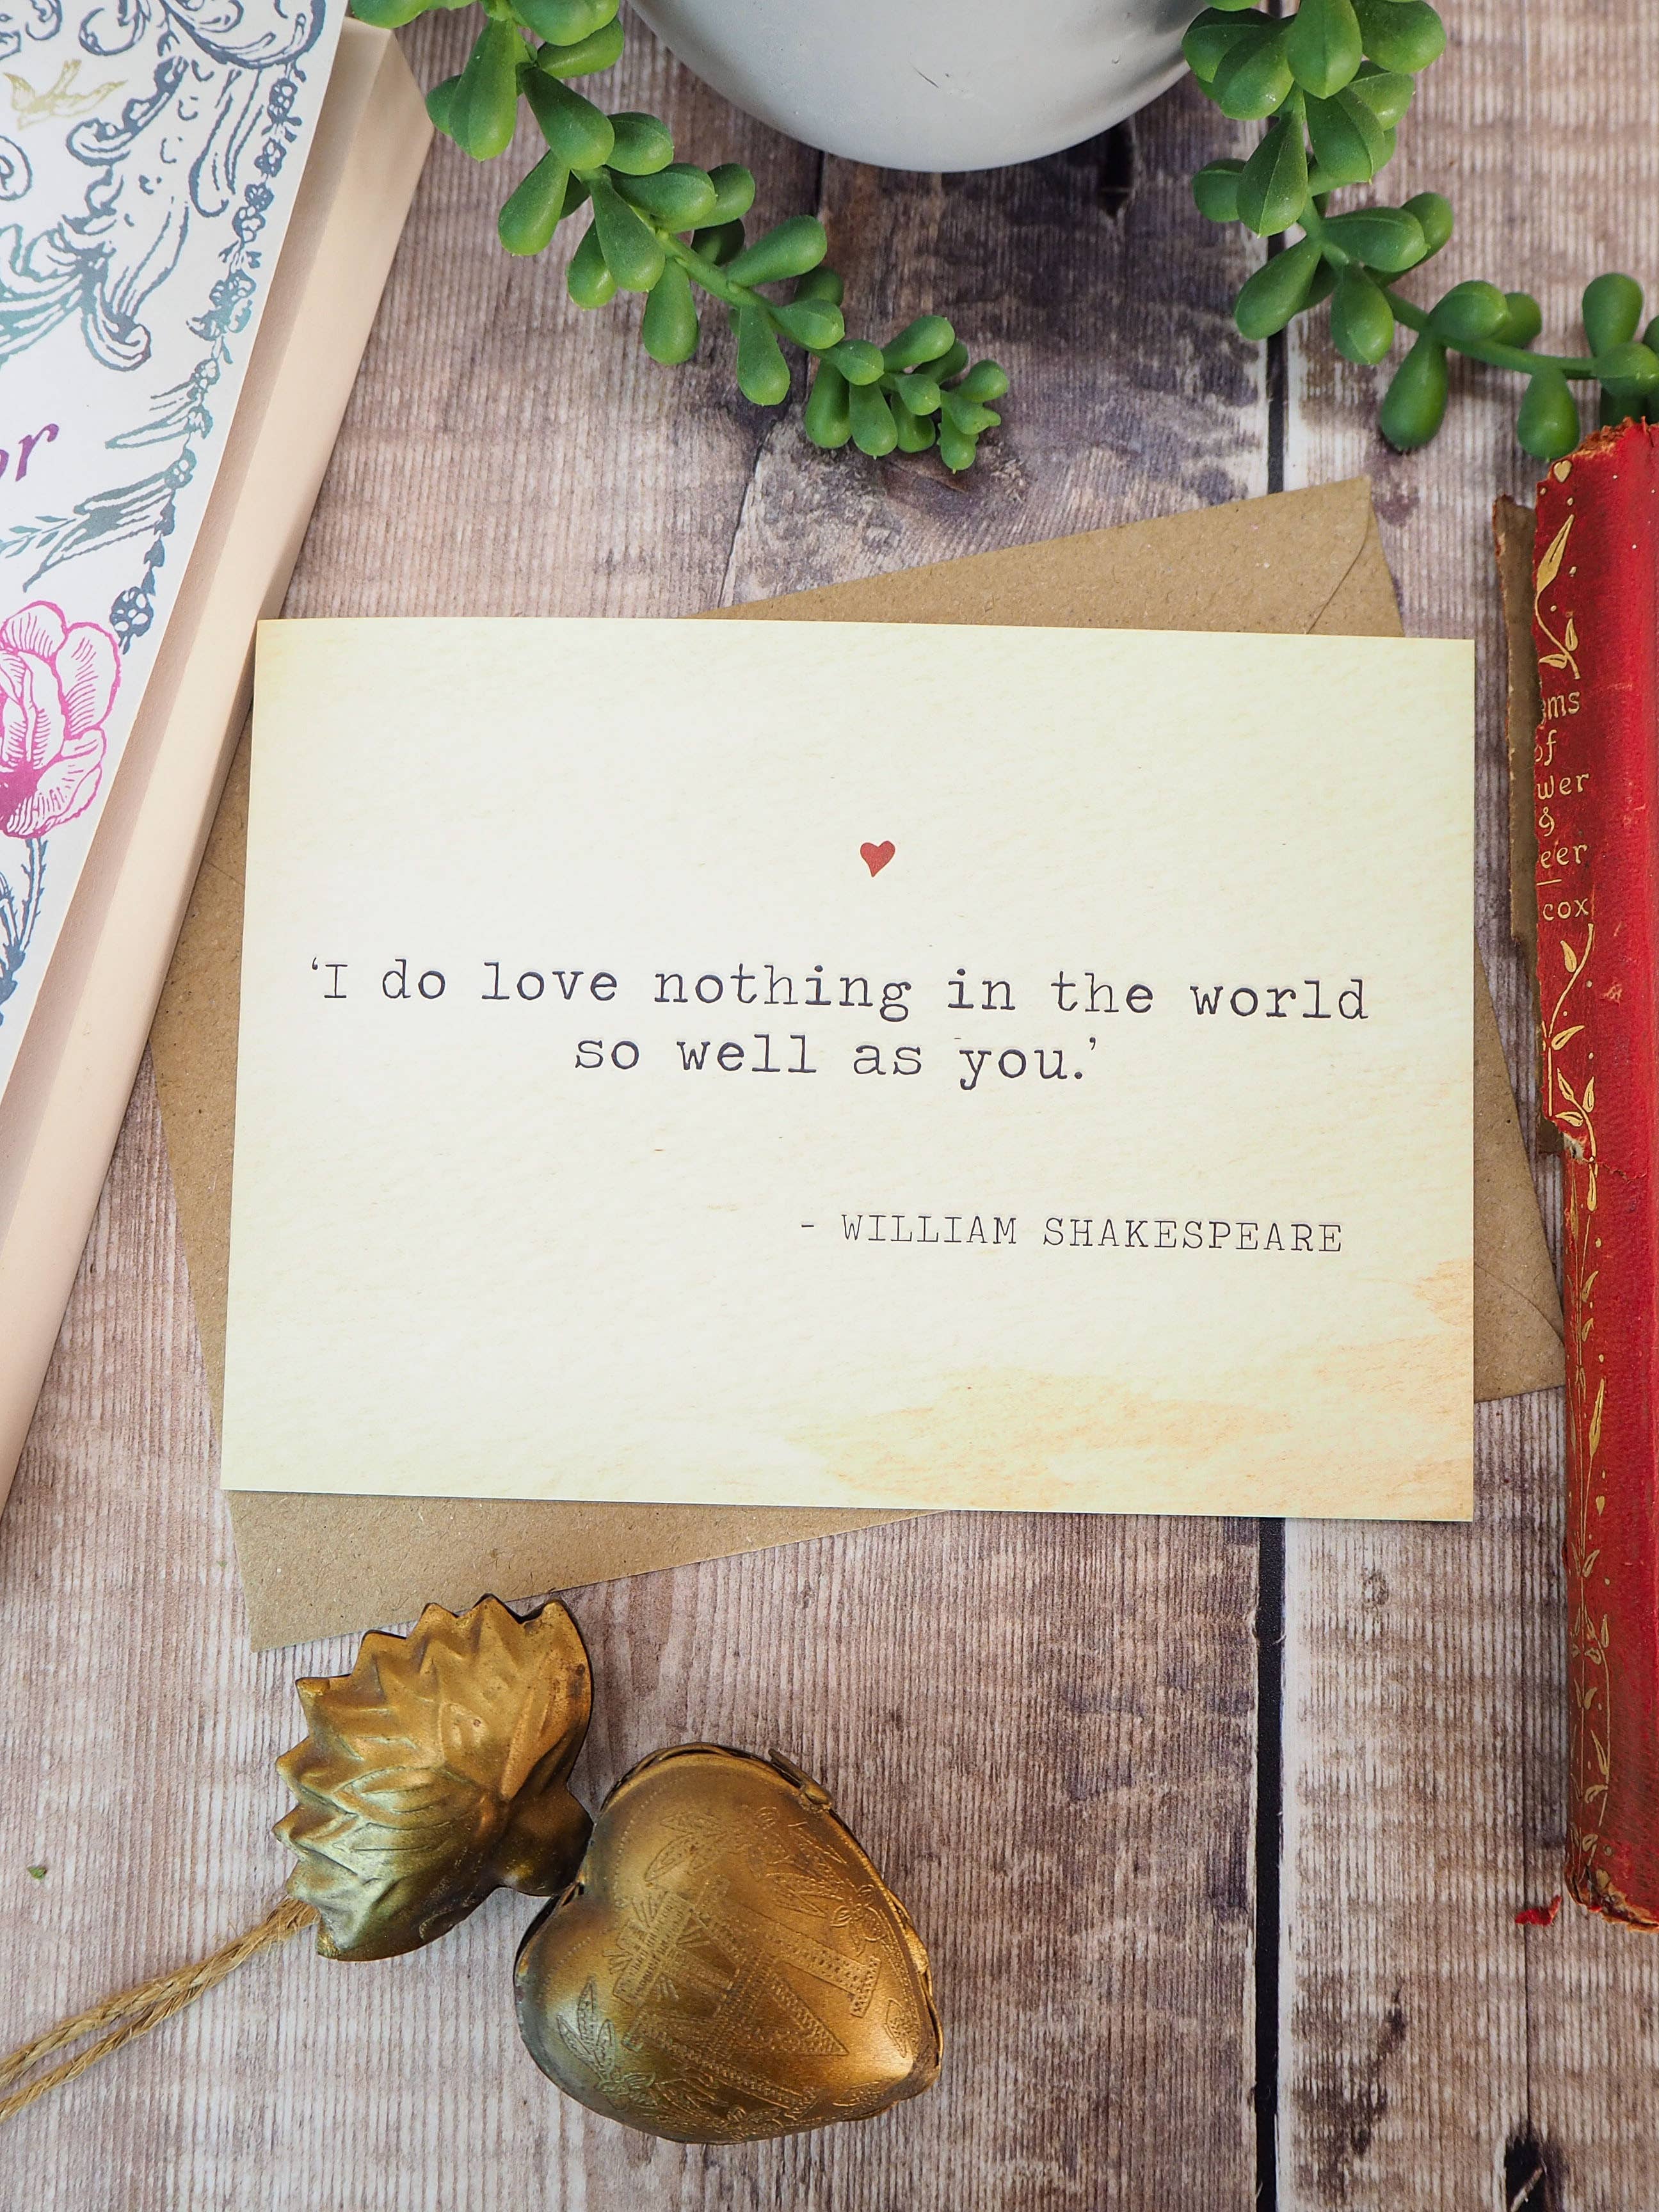 'I do love nothing in the world
so well as you.'
- WILLIAM SHAKESPEARE
of
&